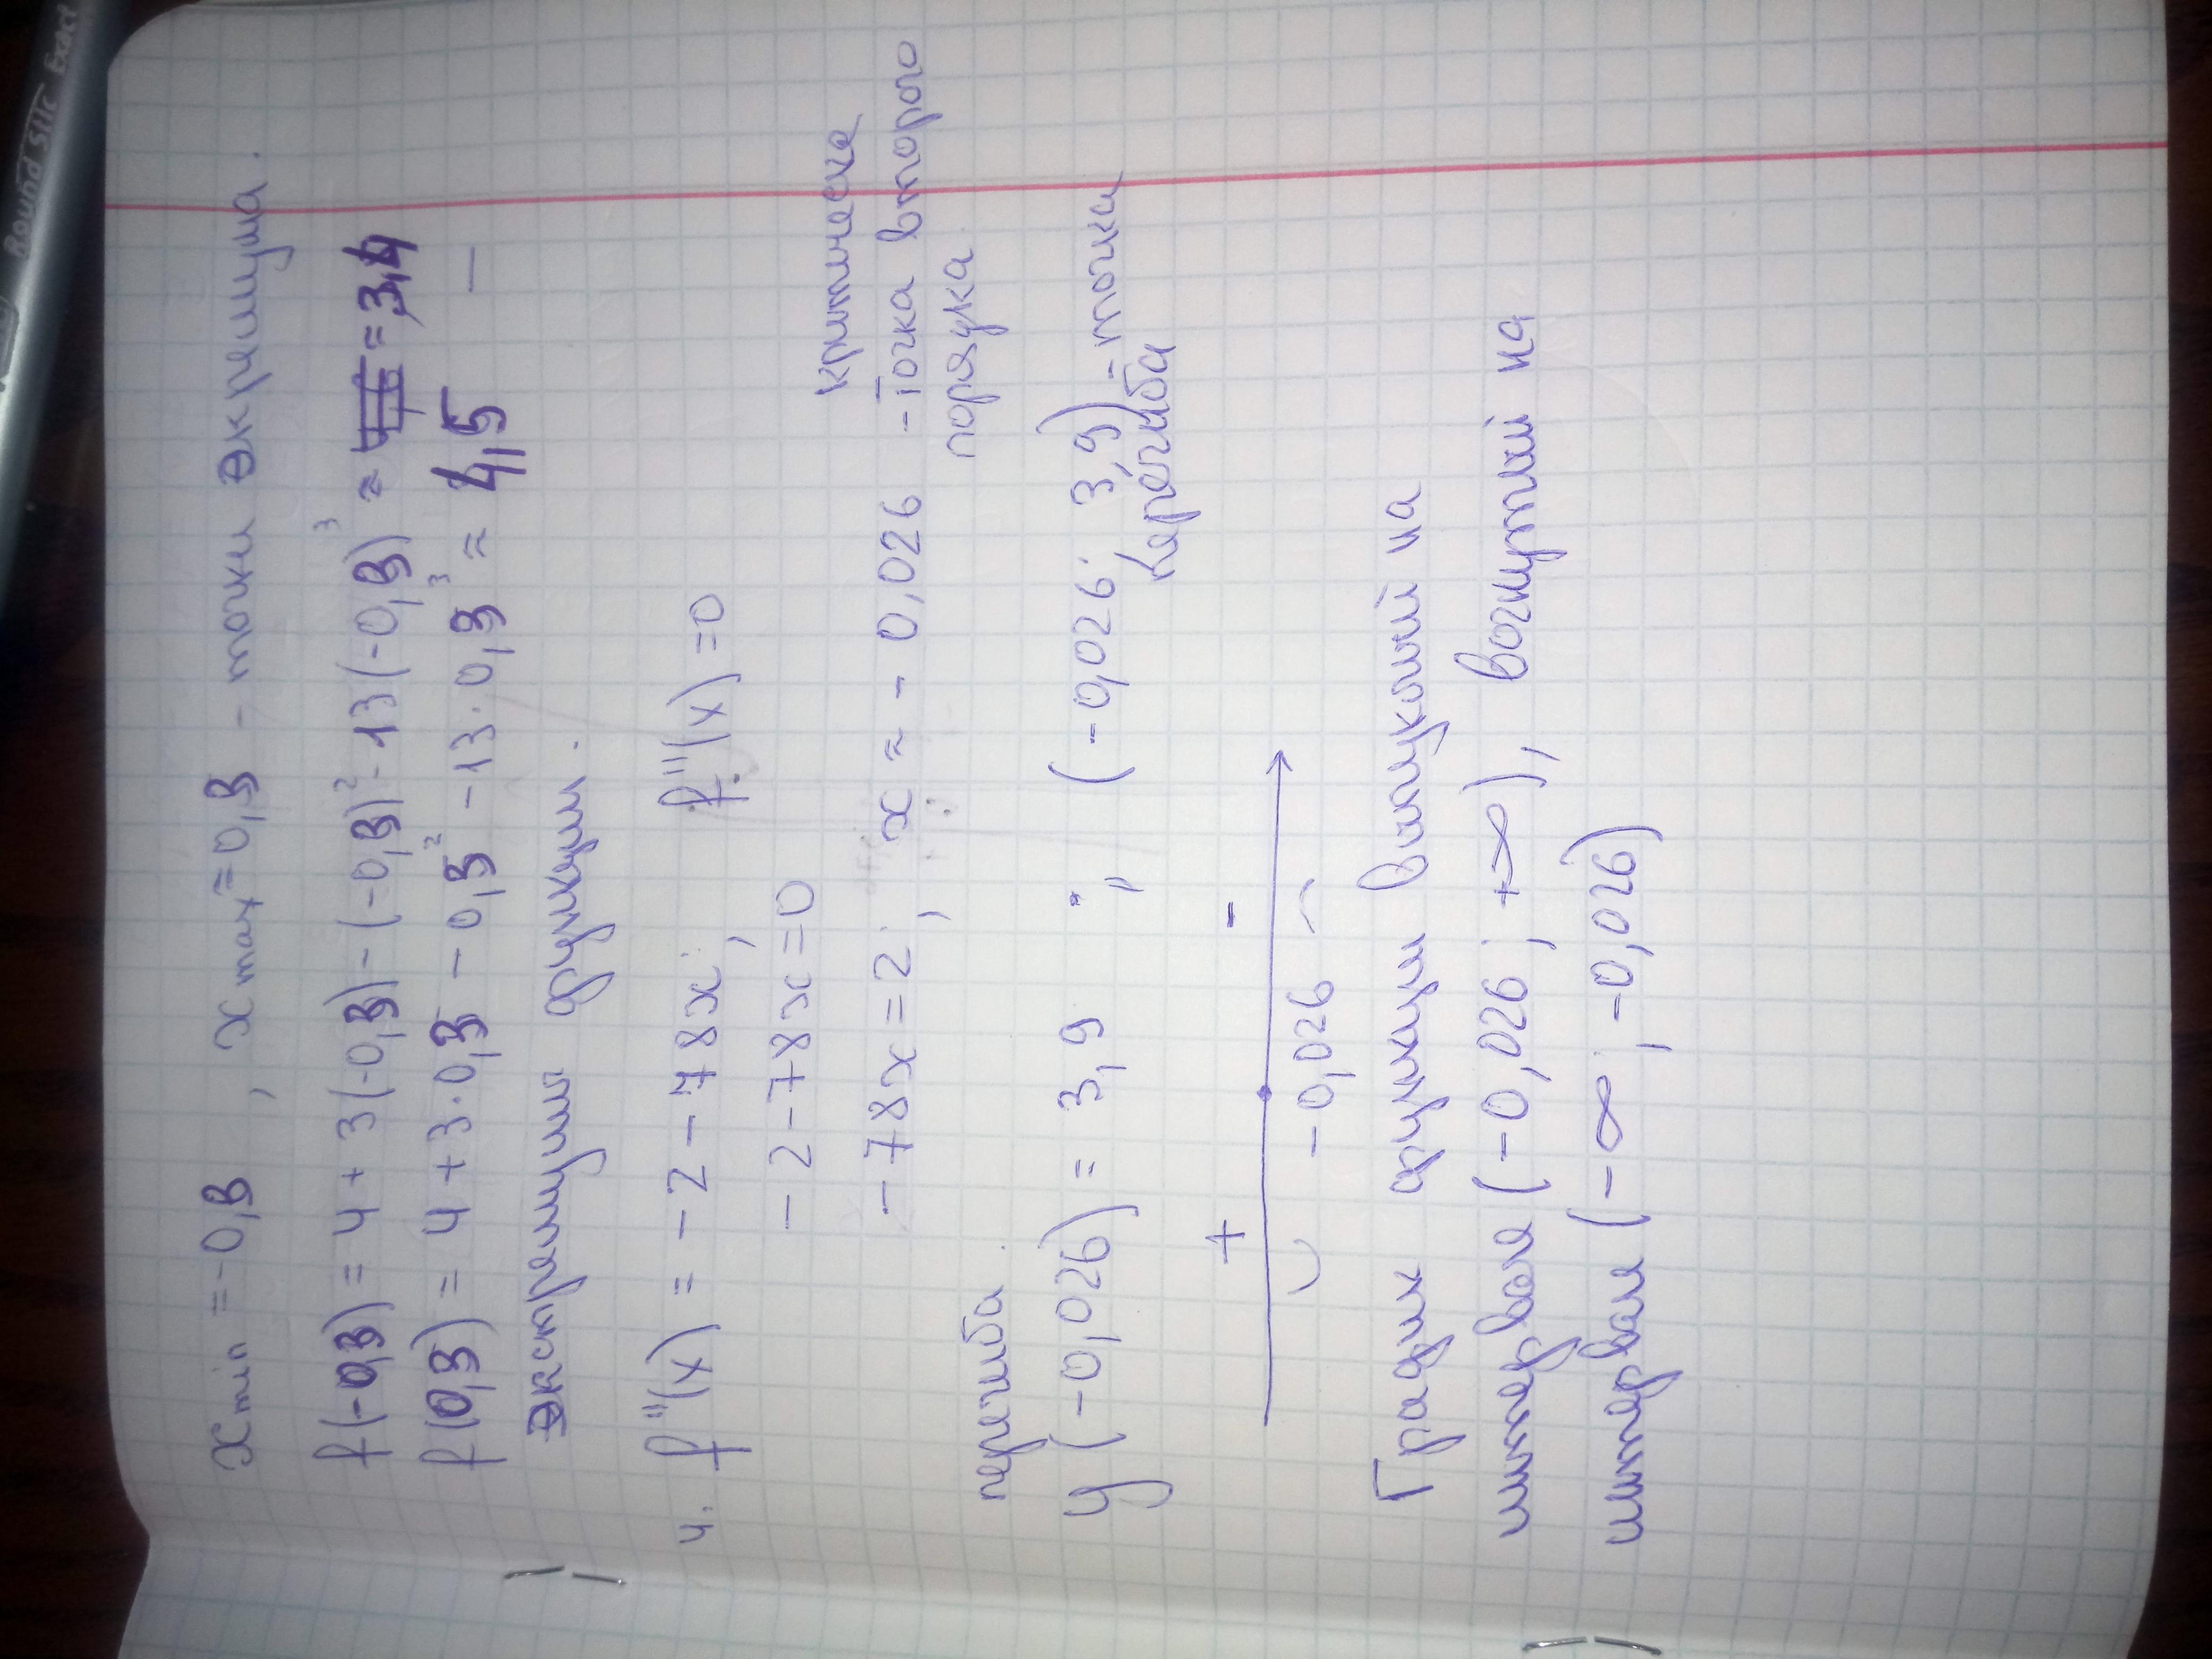 x min = -0,3 , x max = 0,3 - точки экремума.
f(-0,3) = 4 + 3(-0,3) - (-0,3)² - 13(-0,3)³ ≈ = 3,4
f(0,3) = 4 + 3·0,3 - 0,3² - 13·0,3³ ≈ 4,5 —
экстремумы функции.
4. f''(x) = -2 - 78x ; f''(x) = 0
-2 - 78x = 0
критическа
-78x = 2 ; x ≈ - 0,026 - точка второго
порядка
перегиба
y(-0,026) = 3,9 ; (-0,026; 3,9) - точка
перегиба
+ -
-0,026
График функции выпуклый на
интервале (-0,026 ; +∞), вогнутый на
интервале (-∞; -0,026)
Round Stic Exact